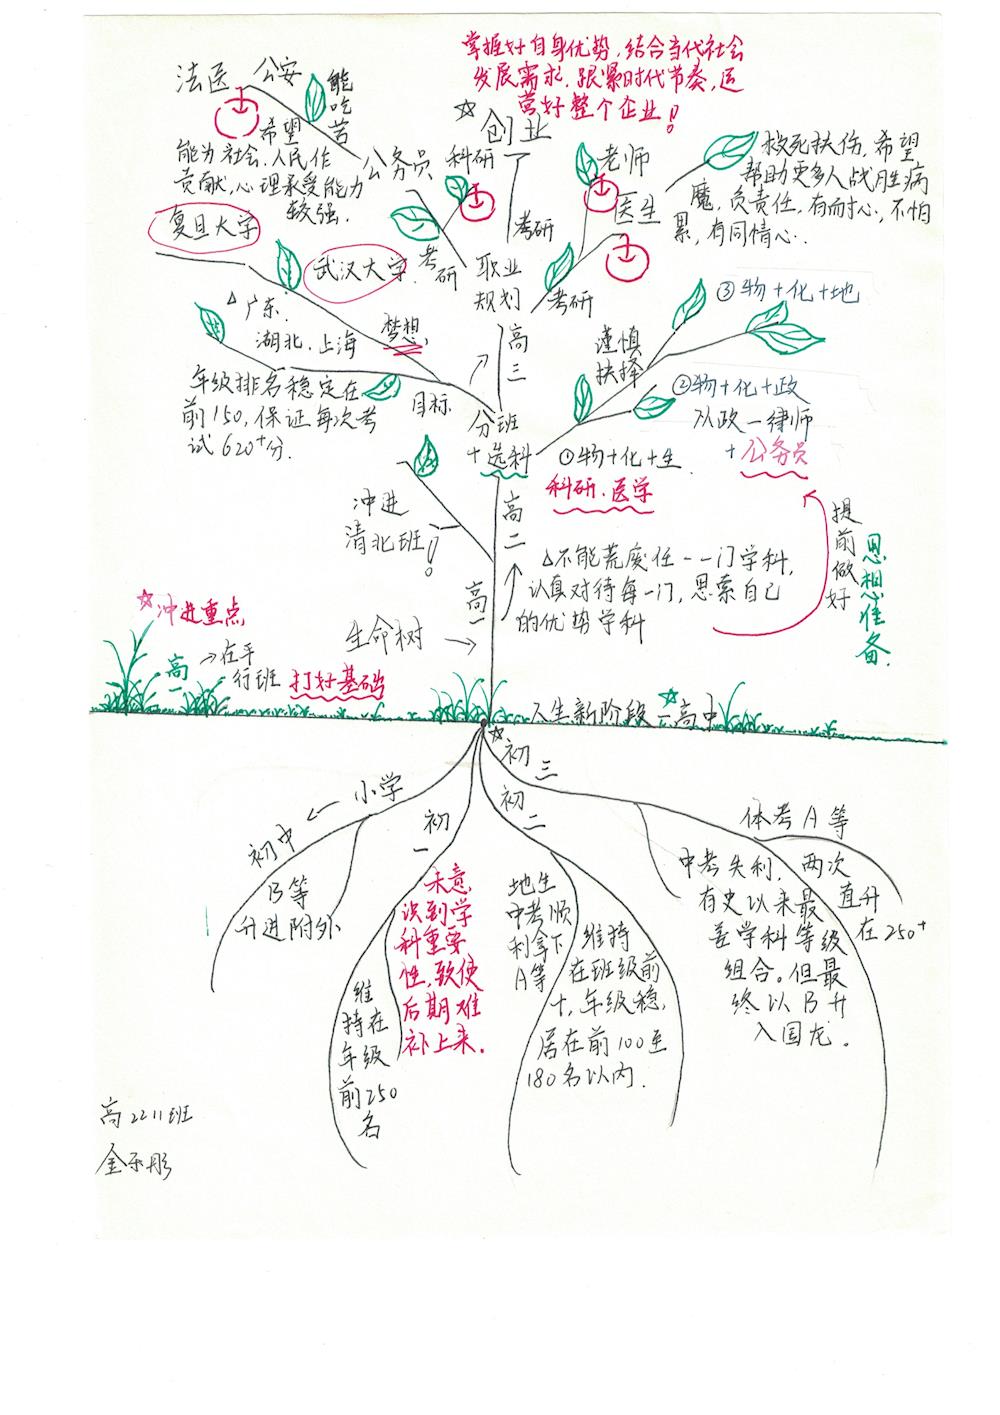 掌握好自身优势,结合当代社会
发展需求,跟紧时代节奏,运
营好整个企业!
☆创业
考研
法医
公安
能吃苦
希望
能为社会、人民作
贡献,心理承受能力
较强.
公务员
科研
考研
老师
医生
考研
救死扶伤,希望
帮助更多人战胜病
魔,负责任,有耐心,不怕
累,有同情心..
职业
规划
复旦大学
武汉大学.
△广东、
湖北、上海
梦想,
年级排名稳定在
前150,保证每次考
试620⁺分.
目标
高三
分班
+选科
谨慎
抉择
③物+化+地
②物+化+政
从政—律师
+公务员
①物+化+生
科研、医学
冲进
清北班!
高二
△不能荒废任一一门学科,
认真对待每一门,思索自己
的优势学科
提前做好
思想准备.
高一
生命树→
☆冲进重点
高一→在平
行班
打好基础
人生新阶段—☆高中
小学
←
初中
B等
升进附外
初一
未意
识到学
科重要
性,致使
后期难
补上来.
维
持在
年级
前250
名
初二
地生
中考顺
利拿下
A等
维持
在班级前
十,年级稳
居在前100至
180名以内.
☆初三
体考A等
中考失利.两次
有史以来最
差学科等级
组合。但最
终以B升
入国龙.
直升
在250⁺
高2211班